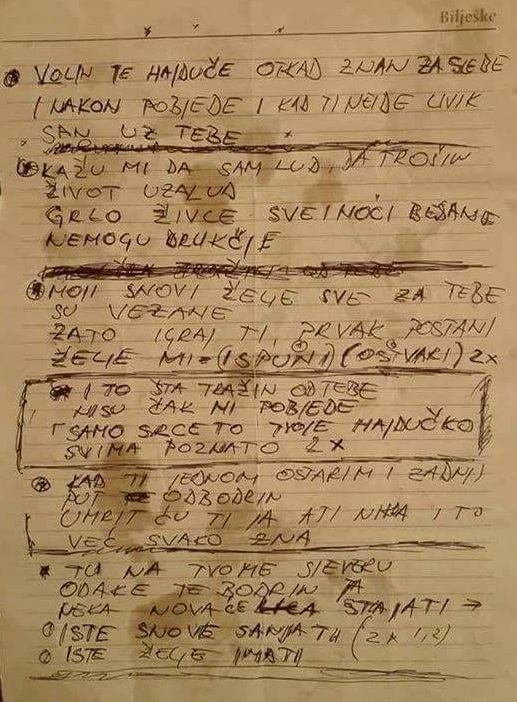 Bilješke
VOLIN TE HAJDUČE OTKAD ZNAN ZA SEBE
I NAKON POBJEDE I KAD TI NEIDE UVIK
SAN UZ TEBE
KAŽU MI DA SAM LUD, DA TROŠIN
ŽIVOT UZALUD
GRLO ŽIVCE SVE I NOĆI BESANE
NEMOGU DRUKČIJE
MOJI SNOVI ŽELJE SVE ZA TEBE
SU VEZANE
ZATO IGRAJ TI, PRVAK POSTANI
ŽELJE MI = (ISPUNI) (OSTVARI) 2x
I TO ŠTA TRAŽIN OD TEBE
NISU ČAK NI POBJEDE
SAMO SRCE TO TVOJE HAJDUČKO
SVIMA POZNATO 2x
KAD TI JEDNOM OSTARIM I ZADNJI
PUT ODBODRIN
UMRIT ĆU TI JA A TI NIKA I TO
VEĆ SVAKO ZNA
TU NA TVOME SJEVERU
ODAKLE TE BODRIN JA
NEKA NOVA ĆE STAJATI →
ISTE SNOVE SANJATI (2x 1,2)
ISTE ŽELJE IMATI